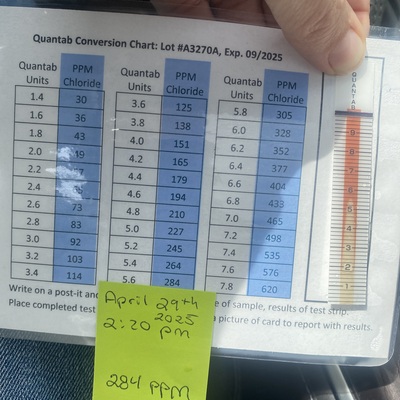 Quantab Conversion Chart: Lot #A3270A, Exp. 09/2025
Quantab Units PPM Chloride Quantab Units PPM Chloride Quantab Units PPM Chloride
1.4 30 3.6 125 5.8 305
1.6 36 3.8 138 6.0 328
1.8 43 4.0 151 6.2 352
2.0 49 4.2 165 6.4 377
2.2 4.4 179 6.6 404
2.4 4.6 194 6.8 433
2.6 73 4.8 210 7.0 465
2.8 83 5.0 227 7.2 498
3.0 92 5.2 245 7.4 535
3.2 103 5.4 264 7.6 576
3.4 114 5.6 284 7.8 620
QUANTAB
9
8
7
6
5
4
3
2
1
Write on a post-it and e of sample, results of test strip.
Place completed test a picture of card to report with results.
April 29th
2025
2:20 pm
284 ppm